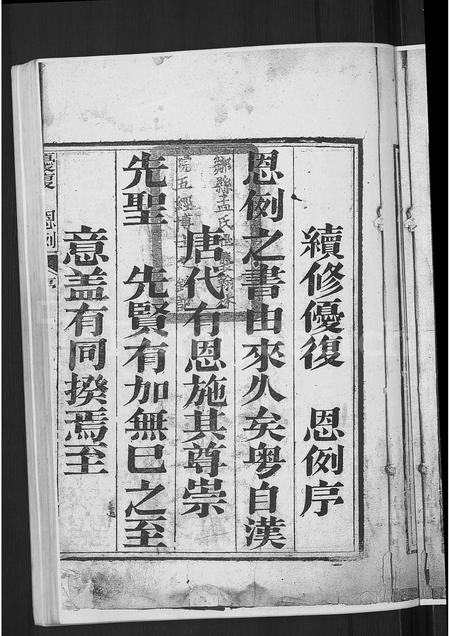 續修優復　恩例序
恩例之書由來久矣粤自漢
唐代有恩施其尊崇
先聖　先賢有加無已之至
意盖有同揆焉至
優復　恩例